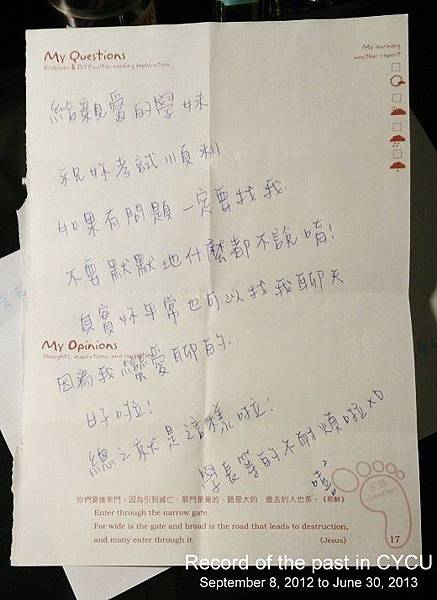 My Questions
Problems & Difficulties needing exploration
My learning
weather report
給親愛的學妹
祝妳考試順利
如果有問題一定要找我
不要默默地什麼都不說唷!
其實妳平常也可以找我聊天
My Opinions
Thoughts, inspirations, and
因為我蠻愛聊的.
好啦!
總之就是這樣啦!
學長等的不耐煩啦XD
嘻嘻
你們要進窄門。因為引到滅亡,那門是寬的,路是大的,進去的人也多。《耶穌》
Enter through the narrow gate.
For wide is the gate and broad is the road that leads to destruction,
and many enter through it.
(Jesus)
17
Record of the past in CYCU
September 8, 2012 to June 30, 2013